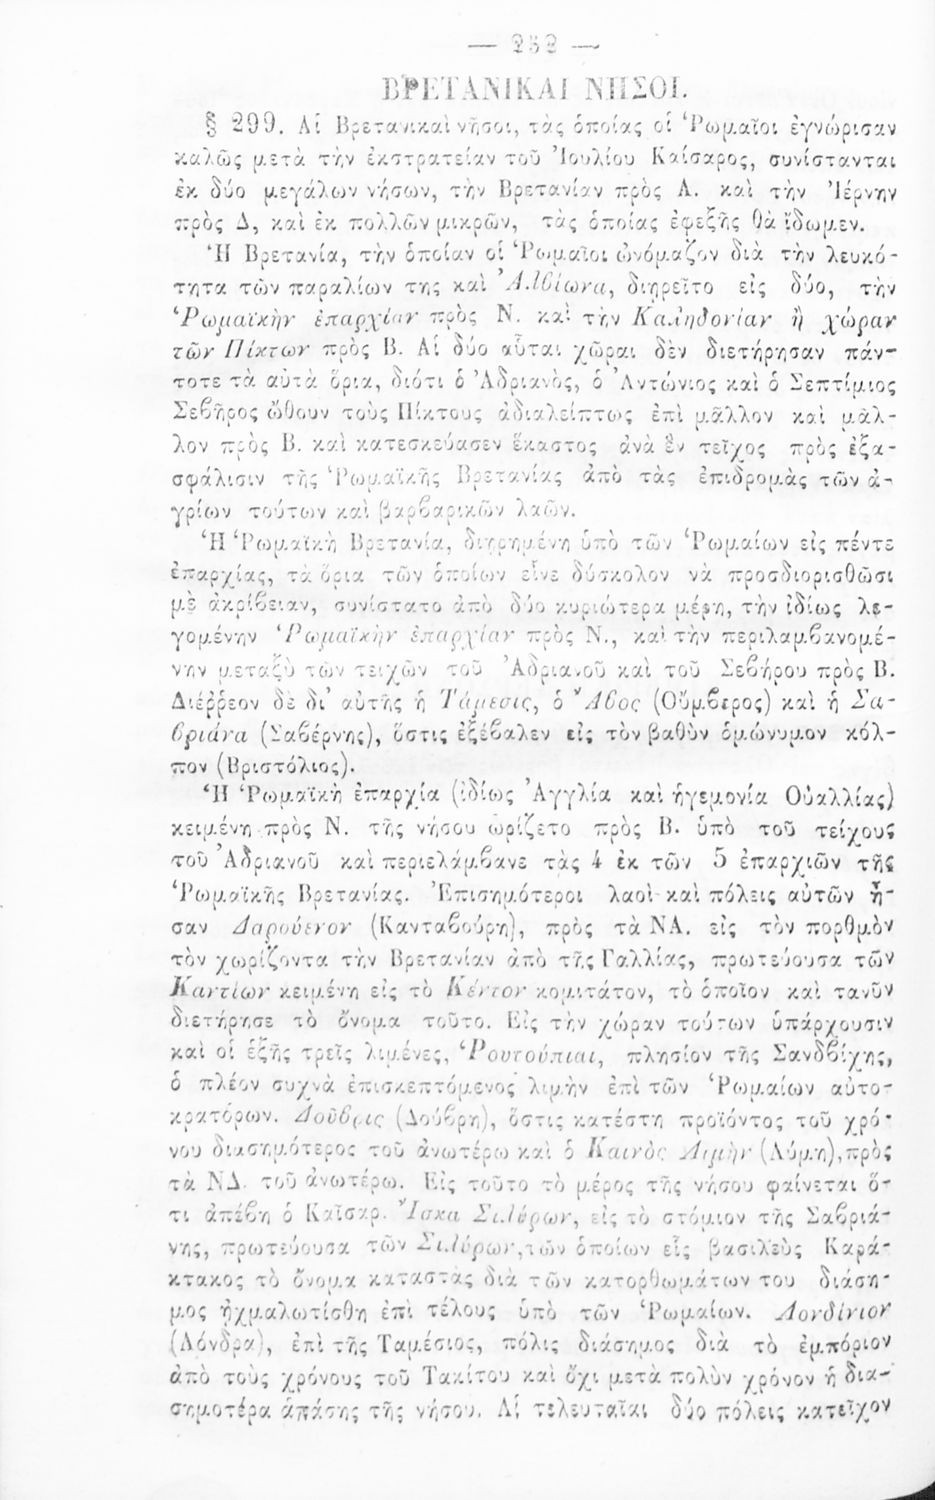 — 252 —
ΒΡΕΤΑΝΙΚΑΙ ΝΗΣΟΙ.
§ 299. Αἱ Βρετανικαὶ νῆσοι, τὰς ὁποίας οἱ Ῥωμαῖοι ἐγνώρισαν
καλῶς μετὰ τὴν ἐκστρατείαν τοῦ Ἰουλίου Καίσαρος, συνίστανται
ἐκ δύο μεγάλων νήσων, τὴν Βρετανίαν πρὸς Α. καὶ τὴν Ἰέρνην
πρὸς Δ, καὶ ἐκ πολλῶν μικρῶν, τὰς ὁποίας ἐφεξῆς θὰ ἴδωμεν.
Ἡ Βρετανία, τὴν ὁποίαν οἱ Ῥωμαῖοι ὠνόμαζον διὰ τὴν λευκό-
τητα τῶν παραλίων της καὶ Ἀλβίωνα, διῃρεῖτο εἰς δύο, τὴν
Ῥωμαϊκὴν ἐπαρχίαν πρὸς Ν. καὶ τὴν Καληδονίαν ἢ χώραν
τῶν Πίκτων πρὸς Β. Αἱ δύο αὗται χῶραι δὲν διετήρησαν πάν-
τοτε τὰ αὐτὰ ὅρια, διότι ὁ Ἀδριανὸς, ὁ Ἀντώνιος καὶ ὁ Σεπτίμιος
Σεβῆρος ὤθουν τοὺς Πίκτους ἀδιαλείπτως ἐπὶ μᾶλλον καὶ μᾶλ-
λον πρὸς Β. καὶ κατεσκεύασεν ἕκαστος ἀνὰ ἓν τεῖχος πρὸς ἐξα-
σφάλισιν τῆς Ῥωμαϊκῆς Βρετανίας ἀπὸ τὰς ἐπιδρομὰς τῶν ἀ-
γρίων τούτων καὶ βαρβαρικῶν λαῶν.
Ἡ Ῥωμαϊκὴ Βρετανία, διῃρημένη ὑπὸ τῶν Ῥωμαίων εἰς πέντε
ἐπαρχίας, τὰ ὅρια τῶν ὁποίων εἶνε δύσκολον νὰ προσδιορισθῶσι
μὲ ἀκρίβειαν, συνίστατο ἀπὸ δύο κυριώτερα μέρη, τὴν ἰδίως λε-
γομένην Ῥωμαϊκὴν ἐπαρχίαν πρὸς Ν., καὶ τὴν περιλαμβανομέ-
νην μεταξὺ τῶν τειχῶν τοῦ Ἀδριανοῦ καὶ τοῦ Σεβήρου πρὸς Β.
Διέῤῥεον δὲ δι' αὐτῆς ἡ Τάμεσις, ὁ Ἄβος (Οὔμβερος) καὶ ἡ Σα-
βριάνα (Σαβέρνης), ὅστις ἐξέβαλεν εἰς τὸν βαθὺν ὁμώνυμον κόλ-
πον (Βριστόλιος).
Ἡ Ῥωμαϊκὴ ἐπαρχία (ἰδίως Ἀγγλία καὶ ἡγεμονία Οὐαλλίας)
κειμένη πρὸς Ν. τῆς νήσου ὡρίζετο πρὸς Β. ὑπὸ τοῦ τείχους
τοῦ Ἀδριανοῦ καὶ περιελάμβανε τὰς 4 ἐκ τῶν 5 ἐπαρχιῶν τῆς
Ῥωμαϊκῆς Βρετανίας. Ἐπισημότεροι λαοὶ καὶ πόλεις αὐτῶν ἦ-
σαν Δαρούενον (Κανταβούρη), πρὸς τὰ ΝΑ. εἰς τὸν πορθμὸν
τὸν χωρίζοντα τὴν Βρετανίαν ἀπὸ τῆς Γαλλίας, πρωτεύουσα τῶν
Καντίων κειμένη εἰς τὸ Κέντον κομιτάτον, τὸ ὁποῖον καὶ τανῦν
διετήρησε τὸ ὄνομα τοῦτο. Εἰς τὴν χώραν τούτων ὑπάρχουσιν
καὶ οἱ ἑξῆς τρεῖς λιμένες, Ῥουτούπιαι, πλησίον τῆς Σανδβίχης,
ὁ πλέον συχνὰ ἐπισκεπτόμενος λιμὴν ἐπὶ τῶν Ῥωμαίων αὐτο-
κρατόρων. Δοῦβρις (Δούβρη), ὅστις κατέστη προϊόντος τοῦ χρό-
νου διασημότερος τοῦ ἀνωτέρω καὶ ὁ Καινὸς Λιμὴν (Λύμη), πρὸς
τὰ ΝΔ. τοῦ ἀνωτέρω. Εἰς τοῦτο τὸ μέρος τῆς νήσου φαίνεται ὅ-
τι ἀπέβη ὁ Καῖσαρ. Ἴσκα Σιλύρων, εἰς τὸ στόμιον τῆς Σαβριά-
νης, πρωτεύουσα τῶν Σιλύρων, τῶν ὁποίων εἷς βασιλεὺς Καρά-
κτακος τὸ ὄνομα καταστὰς διὰ τῶν κατορθωμάτων του διάση-
μος ᾐχμαλωτίσθη ἐπὶ τέλους ὑπὸ τῶν Ῥωμαίων. Λονδίνιον
(Λόνδρα), ἐπὶ τῆς Ταμέσιος, πόλις διάσημος διὰ τὸ ἐμπόριον
ἀπὸ τοὺς χρόνους τοῦ Τακίτου καὶ ὄχι μετὰ πολὺν χρόνον ἡ δια-
σημοτέρα ἁπάσης τῆς νήσου. Αἱ τελευταῖαι δύο πόλεις κατεῖχον